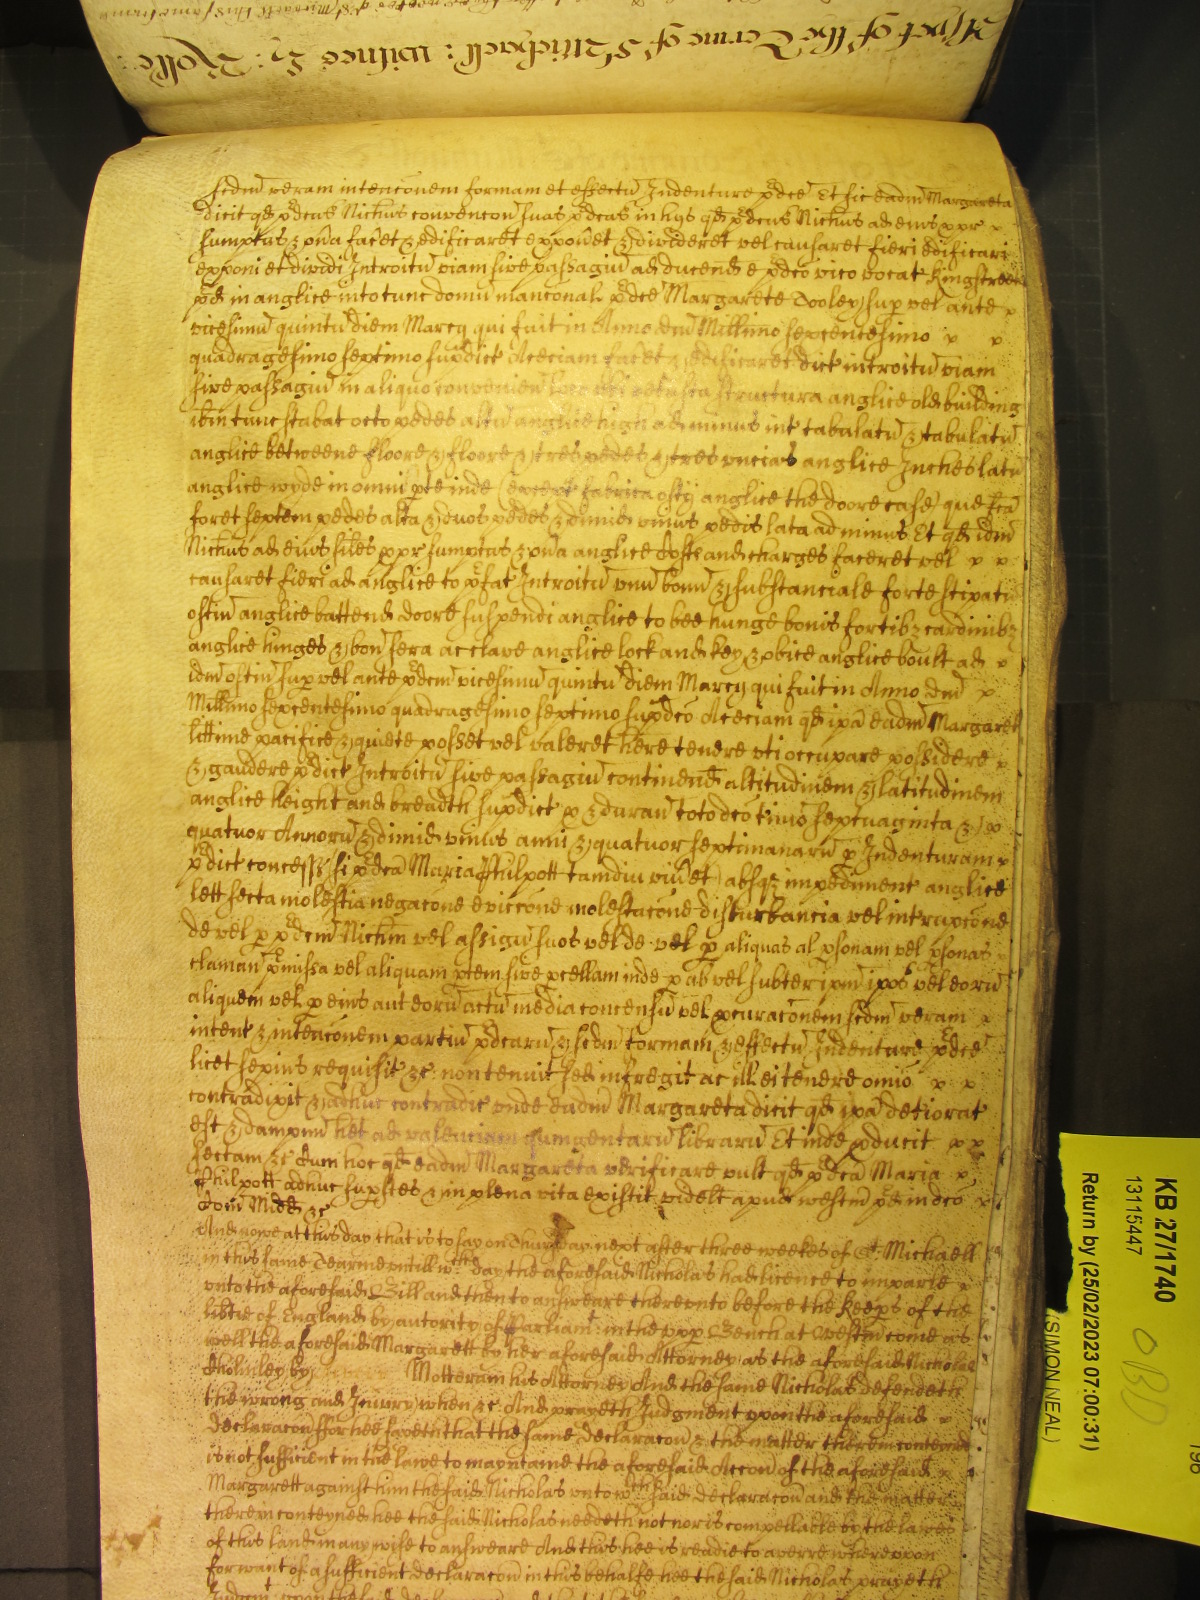 scdm veram intenconem formam et effectu Indenture pdce Et sic eadm Margareta
dicit qd pdcus Nichus convencon suas pdcas in hys qd pdcus Nichus ad eius ppr
sumptus & ona facet & edificaret exponet & divideret vel causaret fieri edificari
exponi et dividi Introitu viam sive passagiu ad ducend e pdco vico vocat Kingstreet
pd in anglice into tunc domu mancional pdce Margarete Dooley sup vel ante
vicesimu quintu diem Marcij qui fuit in Anno dm Millimo sexcentesimo
quadragesimo septimo supdict Aceciam facet & edificaret dict introitu viam
sive passagiu in aliquo convenien loco ubi vetusta structura anglice old building
ibm tunc stabat octo pedes altu anglice high ad minus int tabulatu & tabulatu
anglice betweene floore & floore & tres pedes & tres uncias anglice Inches latu
anglice wyde in omni pte inde (except fabrica ostij anglice the doore case) que fca
foret septem pedes alta & duos pedes & dimid unius pedis lata ad minus Et qd idm
Nichus ad eius siles ppr sumptus & ona anglice Costs and charges faceret vel
causaret fieri ad anglice to pfat Introitu unu bonu & substanciale forte stipatu
ostiu anglice battend doore suspendi anglice to bee hunge bonis fortibz cardinibz
anglice hinges & bon sera ac clave anglice lock and key & obice anglice boult ad
idm ostiu sup vel ante pdcm vicesimu quintu diem Marcij qui fuit in Anno dm
Millimo sexcentesimo quadragesimo septimo supdco Aceciam qd ipa eadm Margaret
littime pacifice & quiete posset vel valeret here tenere uti occupare possidere
& gaudere pdict Introitu sive passagiu continend altitudinem & latitudinem
anglice height and breadth supdict p & duran toto dco timio septuaginta &
quatuor Annoru & dimid unius anni & quatuor septimanaru p Indenturam
pdict concess (si pdca Maria Philpott tamdiu vivet) absqz impediment anglice
lett secta molestia negacone eviccone molestacone disturbancia vel intrupcone
de vel p pdcm Nichm vel assign suos vel de vel p aliquas al psonam vel psonas
claman pmissa vel aliquam ptem sive pcellam inde p ab vel subter ipm ipos vel eoru
aliquem vel p eius aut eoru actu media concensu vel pcuraconem scdm veram
intent & intenconem partiu pdcaru & scdm formam & effectu Indenture pdce
licet sepius requisit &c non tenuit sed infregit ac ill ei tenere omio
contradixit & adhuc contradic unde eadm Margareta dicit qd ipa deteriorat
est & dampnu het ad valenciam quingentaru libraru Et inde pducit
sectam &c Cum hoc qd eadm Margareta verificare vult qd pdca Maria
Philpott adhuc supstes & in plena vita existit videlt apud westm pd in dco
Com Midd &c
And nowe at this day that is to say on Thursday next after three weekes of St Michaell
in this same Tearme untill wch day the aforesaid Nicholas had licence to imparle
unto the aforesaid Bill and then to answeare thereunto before the Keeps of the
libtie of England by autority of Parliamt in the upp Bench at Westm come as
well the aforesaid Margarett by her aforesaid Attorney as the aforesaid Nicholas
Cholmley by Motteram his Attorney And the same Nicholas defendeth
the wrong and Iniury when &c And prayeth Iudgment upon the aforesaid
declaracon ffor hee sayeth that the same declaracon & the matter therein conteyned
is not sufficient in the lawe to mayntaine the aforesaid Accon of the aforesaid
Margarett against him the said Nicholas unto wch said declaracon and the matter
therein conteyned hee the said Nicholas needeth not nor is compellable by the lawes
of this land in any wise to answeare And this hee is readie to averre whereupon
for want of a sufficient declaracon in this behalfe hee the said Nicholas prayeth
KB 27/1740
13115447
Return by (25/02/2023 07:00:31)
(SIMON NEAL)